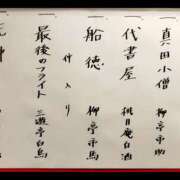 一 真田小僧 柳亭市助
一 代書屋 桃月庵白酒
一 船徳 柳亭市馬
仲入り
一 最後のフライト 三遊亭白鳥